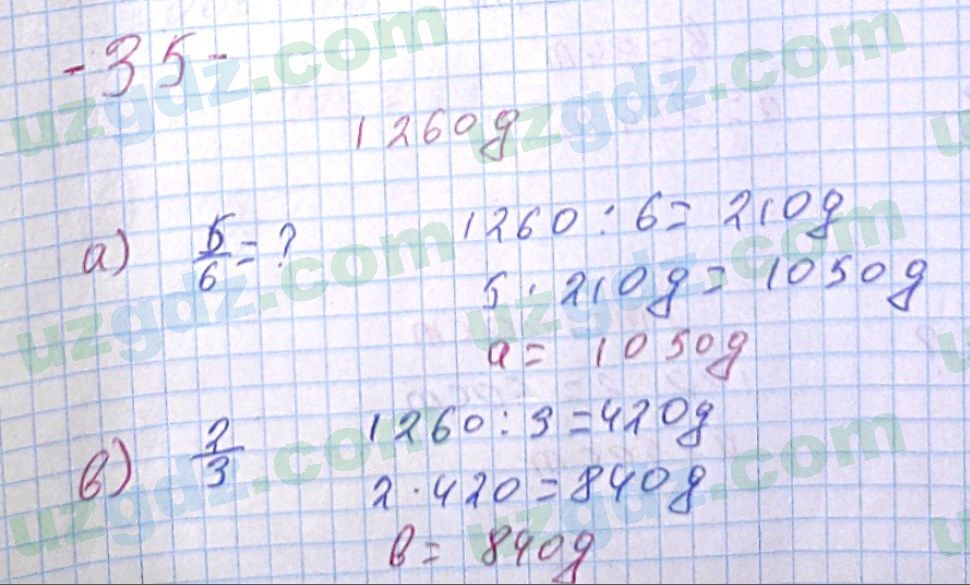 -35-
1260g
a) 5/6 = ? 1260 : 6 = 210g
5 · 210g = 1050g
a = 1050g
b) 2/3 1260 : 3 = 420g
2 · 420 = 840g
b = 840g
uzgdz.com
uzgdz.com
uzgdz.com
uzgdz.com
uzgdz.com
uzgdz.com